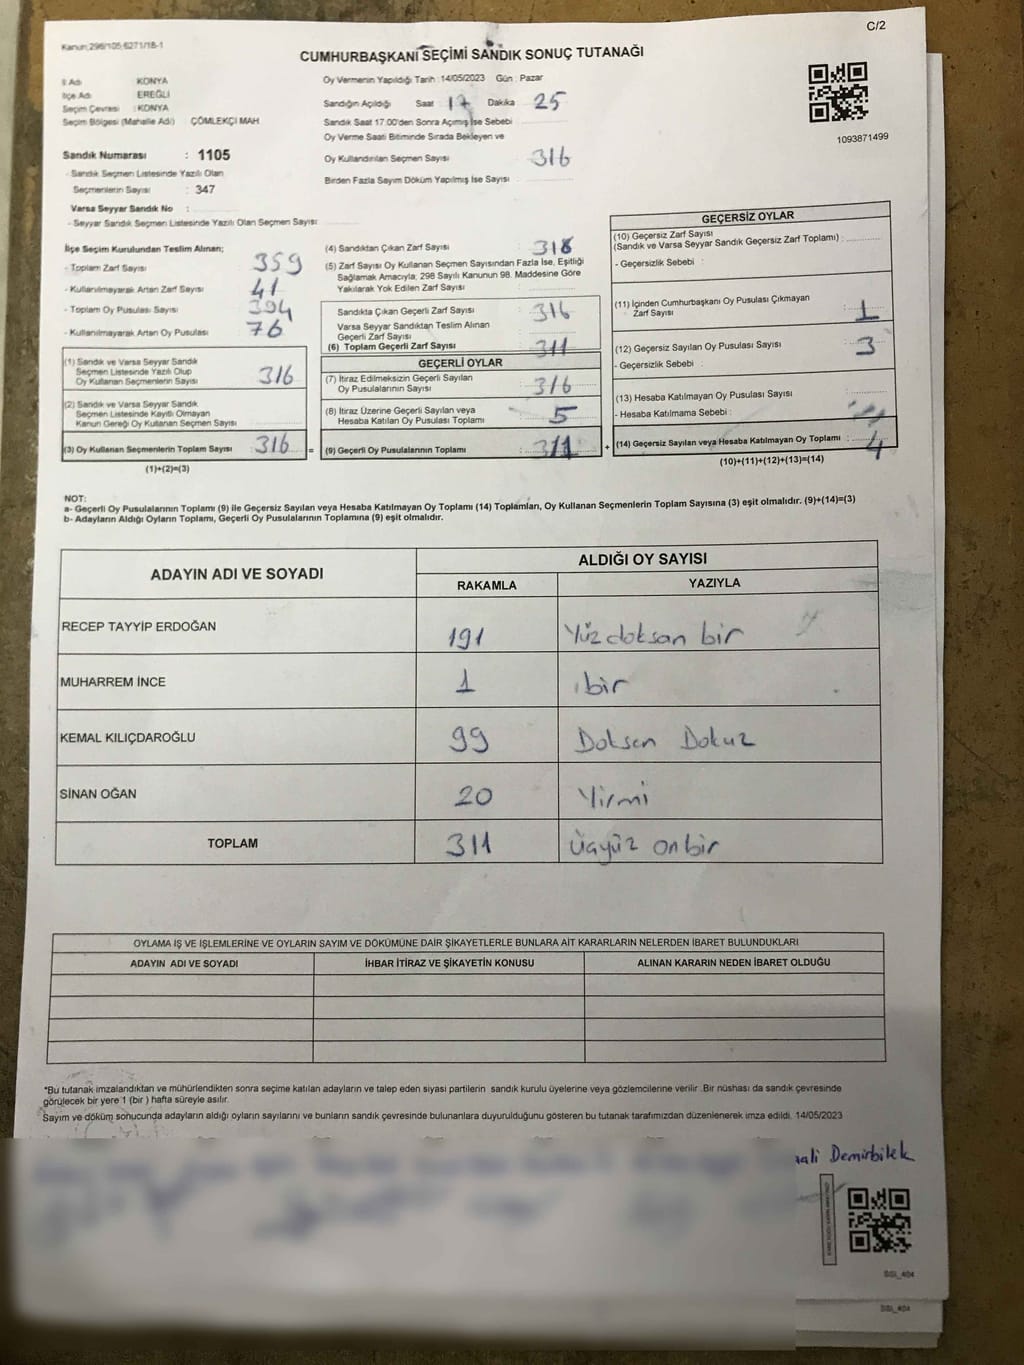 C/2
Kanun:298/105;6271/18-1
CUMHURBAŞKANI SEÇİMİ SANDIK SONUÇ TUTANAĞI
İl Adı : KONYA
İlçe Adı : EREĞLİ
Seçim Çevresi : KONYA
Seçim Bölgesi (Mahalle Adı) : ÇÖMLEKÇİ MAH.
Oy Vermenin Yapıldığı Tarih :14/05/2023 Gün : Pazar
Sandığın Açıldığı Saat 17 Dakika 25
Sandık Saat 17.00'den Sonra Açımış İse Sebebi :
Oy Verme Saati Bitiminde Sırada Bekleyen ve
Oy Kullandırılan Seçmen Sayısı : 316
Birden Fazla Sayım Döküm Yapılmış İse Sayısı :
1093871499
Sandık Numarası : 1105
- Sandık Seçmen Listesinde Yazılı Olan
Seçmenlerin Sayısı : 347
Varsa Seyyar Sandık No :
- Seyyar Sandık Seçmen Listesinde Yazılı Olan Seçmen Sayısı:
İlçe Seçim Kurulundan Teslim Alınan;
- Toplam Zarf Sayısı : 359
- Kullanılmayarak Artan Zarf Sayısı : 41
- Toplam Oy Pusulası Sayısı : 394
- Kullanılmayarak Artan Oy Pusulası : 76
(1) Sandık ve Varsa Seyyar Sandık
Seçmen Listesinde Yazılı Olup
Oy Kullanan Seçmenlerin Sayısı : 316
(2) Sandık ve Varsa Seyyar Sandık
Seçmen Listesinde Kayıtlı Olmayan
Kanun Gereği Oy Kullanan Seçmen Sayısı :
(3) Oy Kullanan Seçmenlerin Toplam Sayısı : 316 =
(1)+(2)=(3)
(4) Sandıktan Çıkan Zarf Sayısı : 318
(5) Zarf Sayısı Oy Kullanan Seçmen Sayısından Fazla İse, Eşitliği
Sağlamak Amacıyla; 298 Sayılı Kanunun 98. Maddesine Göre
Yakılarak Yok Edilen Zarf Sayısı :
Sandıkta Çıkan Geçerli Zarf Sayısı : 316
Varsa Seyyar Sandıktan Teslim Alınan
Geçerli Zarf Sayısı :
(6) Toplam Geçerli Zarf Sayısı : 311
GEÇERLİ OYLAR
(7) İtiraz Edilmeksizin Geçerli Sayılan
Oy Pusulalarının Sayısı : 316
(8) İtiraz Üzerine Geçerli Sayılan veya
Hesaba Katılan Oy Pusulası Toplamı : 5
(9) Geçerli Oy Pusulalarının Toplamı : 311 +
GEÇERSİZ OYLAR
(10) Geçersiz Zarf Sayısı
(Sandık ve Varsa Seyyar Sandık Geçersiz Zarf Toplamı) :
- Geçersizlik Sebebi :
(11) İçinden Cumhurbaşkanı Oy Pusulası Çıkmayan
Zarf Sayısı : 1
(12) Geçersiz Sayılan Oy Pusulası Sayısı : 3
- Geçersizlik Sebebi :
(13) Hesaba Katılmayan Oy Pusulası Sayısı :
- Hesaba Katılmama Sebebi :
(14) Geçersiz Sayılan veya Hesaba Katılmayan Oy Toplamı : 4
(10)+(11)+(12)+(13)=(14)
NOT:
a- Geçerli Oy Pusulalarının Toplamı (9) ile Geçersiz Sayılan veya Hesaba Katılmayan Oy Toplamı (14) Toplamları, Oy Kullanan Seçmenlerin Toplam Sayısına (3) eşit olmalıdır. (9)+(14)=(3)
b- Adayların Aldığı Oyların Toplamı, Geçerli Oy Pusulalarının Toplamına (9) eşit olmalıdır.
ADAYIN ADI VE SOYADI
ALDIĞI OY SAYISI
RAKAMLA YAZIYLA
RECEP TAYYİP ERDOĞAN 191 Yüz doksan bir
MUHARREM İNCE 1 bir
KEMAL KILIÇDAROĞLU 99 Doksan Dokuz
SİNAN OĞAN 20 Yirmi
TOPLAM 311 Üçyüz onbir
OYLAMA İŞ VE İŞLEMLERİNE VE OYLARIN SAYIM VE DÖKÜMÜNE DAİR ŞİKAYETLERLE BUNLARA AİT KARARLARIN NELERDEN İBARET BULUNDUKLARI
ADAYIN ADI VE SOYADI İHBAR İTİRAZ VE ŞİKAYETİN KONUSU ALINAN KARARIN NEDEN İBARET OLDUĞU
*Bu tutanak imzalandıktan ve mühürlendikten sonra seçime katılan adayların ve talep eden siyasi partilerin sandık kurulu üyelerine veya gözlemcilerine verilir .Bir nüshası da sandık çevresinde
görülecek bir yere 1 (bir ) hafta süreyle asılır.
Sayım ve döküm sonucunda adayların aldığı oyların sayılarını ve bunların sandık çevresinde bulunanlara duyurulduğunu gösteren bu tutanak tarafımızdan düzenlenerek imza edildi. 14/05/2023
ali Demirbilek
SSI_404
SSI_404